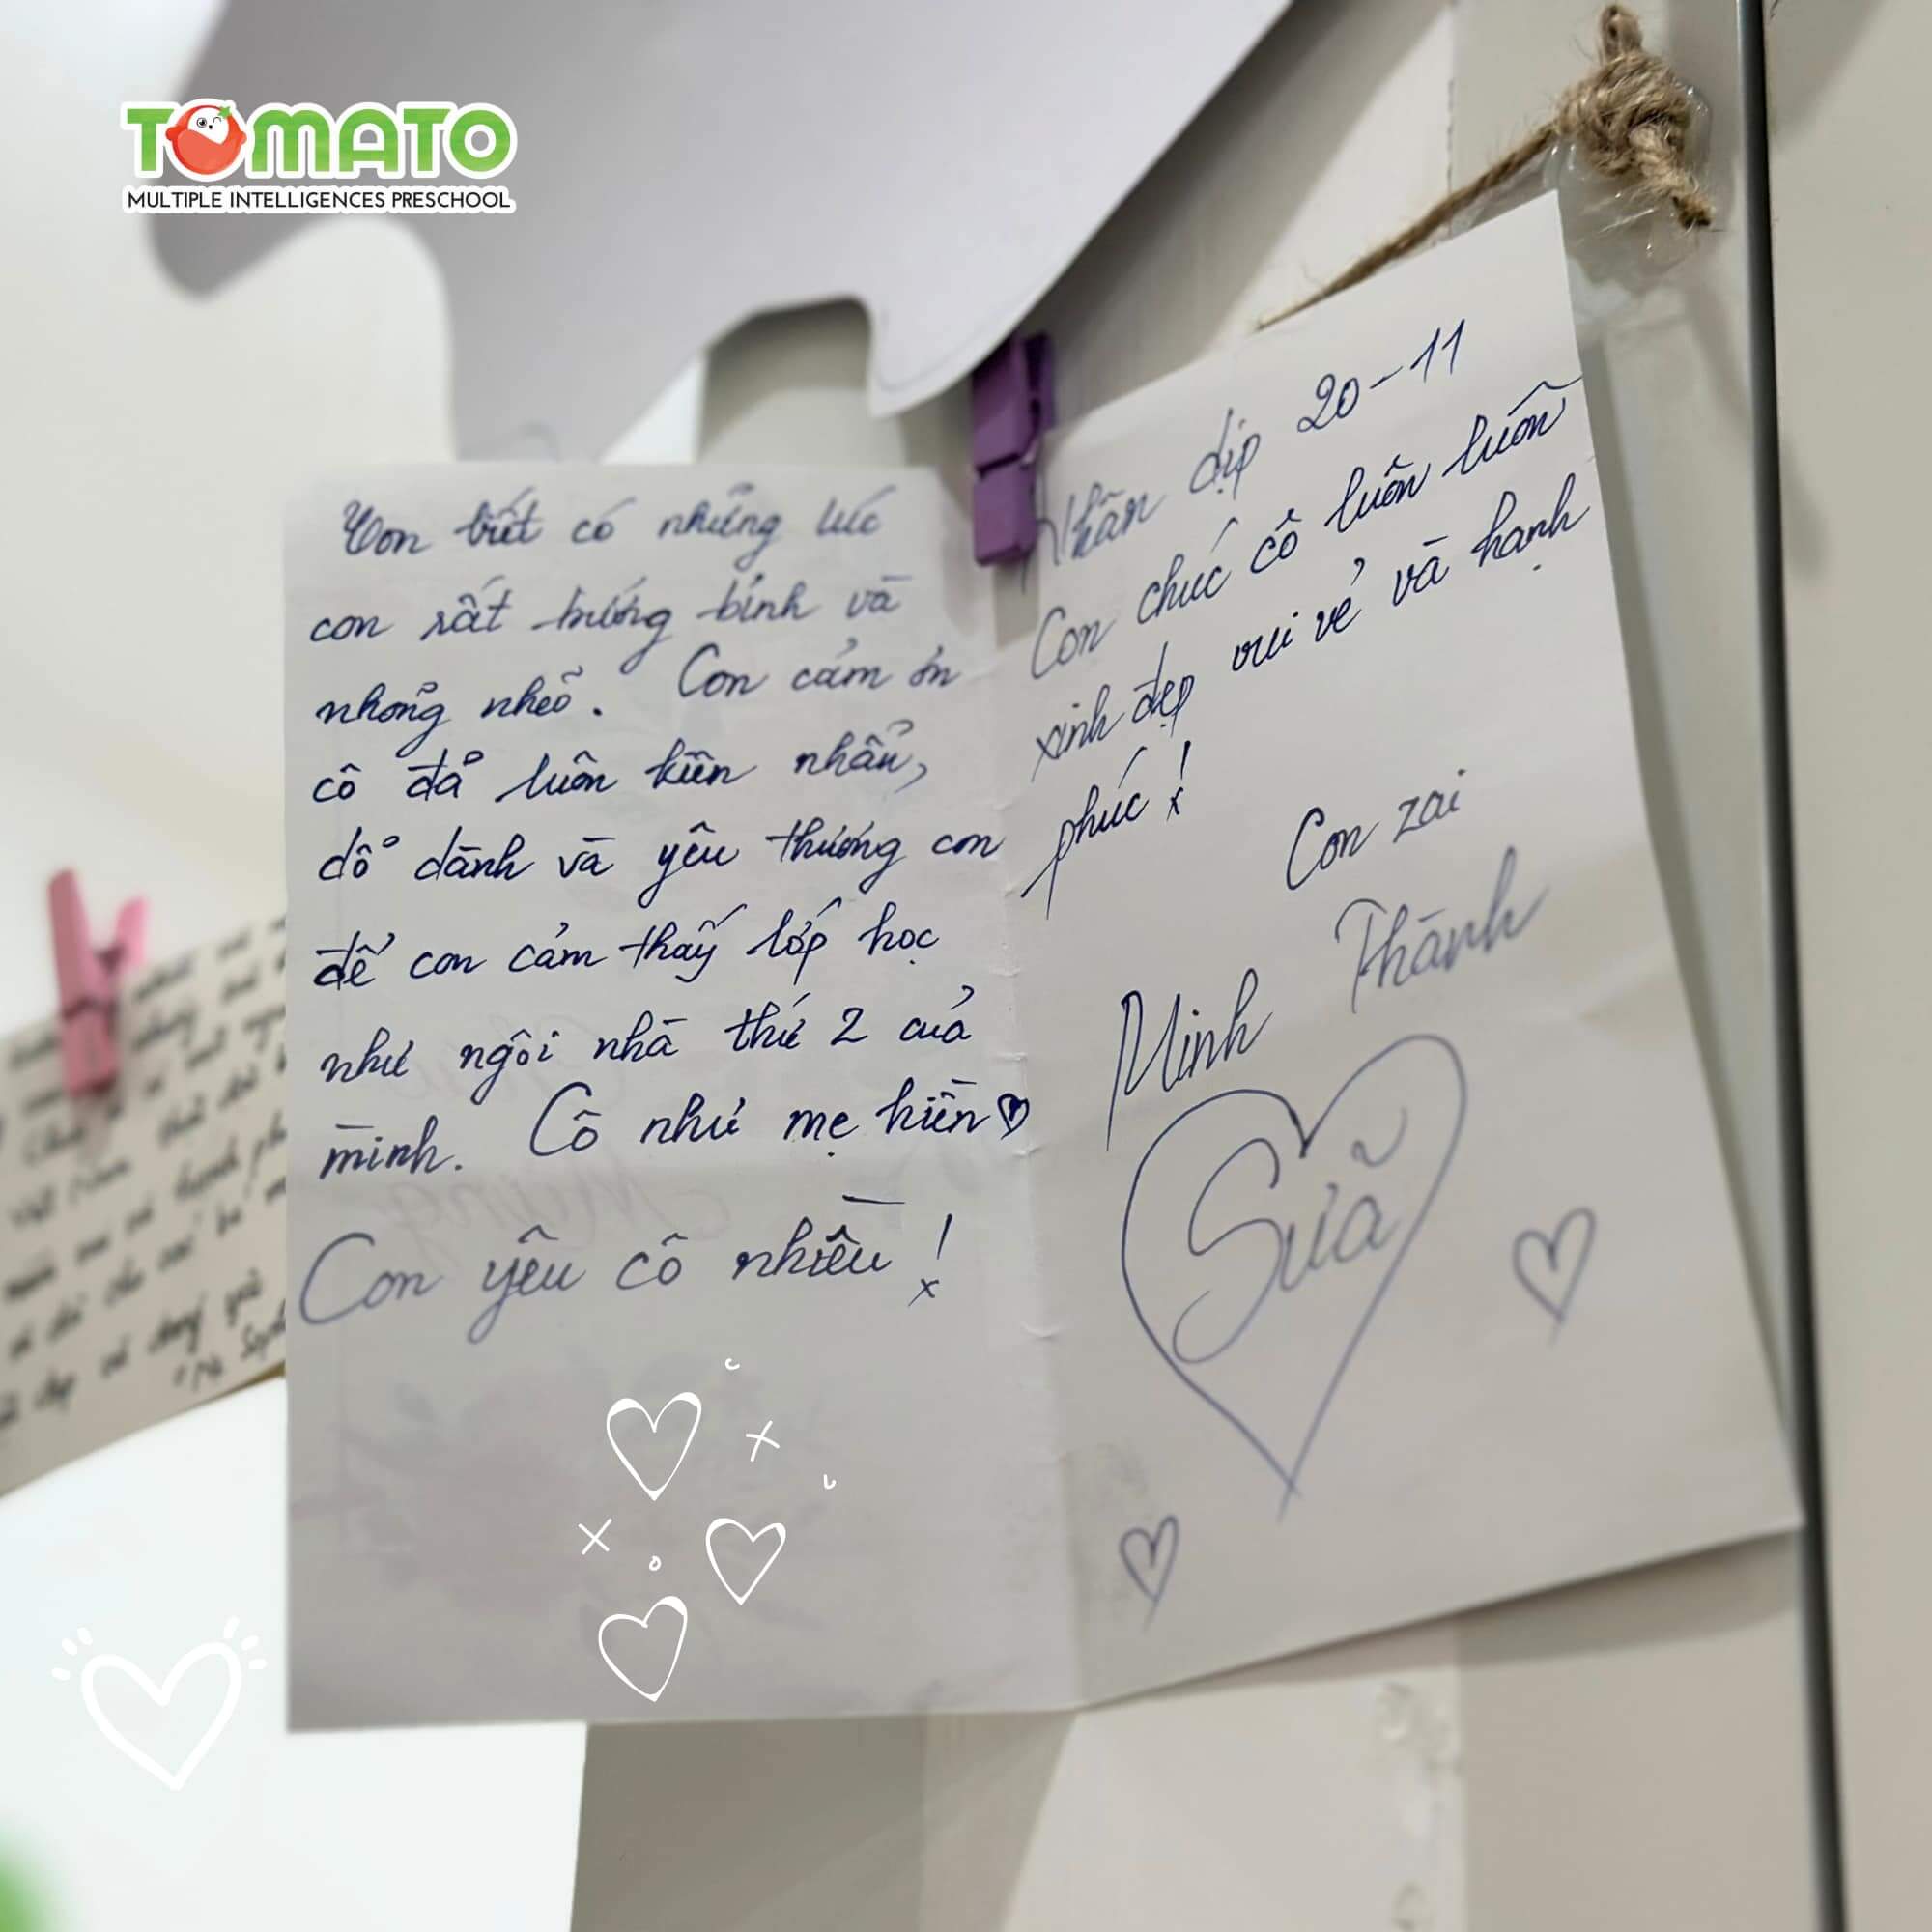 TOMATO
MULTIPLE INTELLIGENCES PRESCHOOL
Con biết có những lúc
con rất bướng bỉnh và
nhõng nhẽo. Con cảm ơn
cô đả luôn kiên nhẩn,
dổ dành và yêu thương con
để con cảm thấy lớp học
như ngôi nhà thứ 2 của
mình. Cô như mẹ hiền
Con yêu cô nhiều!
Nhân dịp 20-11
Con chúc cô luôn luôn
xinh đẹp vui vẻ và hạnh
phúc!
Con zai
Minh Thành
Sữa